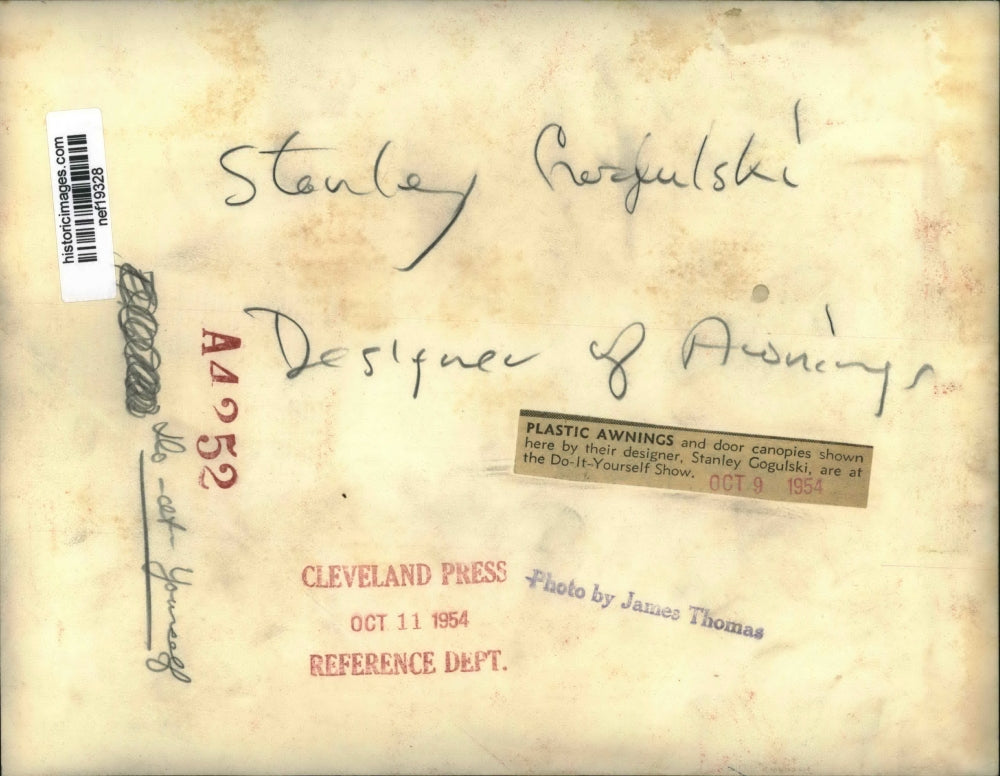 Stanley Gogulski
Designer of Awnings
historicimages.com
nef19328
A4252
Do-it-Yourself
PLASTIC AWNINGS and door canopies shown
here by their designer, Stanley Gogulski, are at
the Do-It-Yourself Show.
OCT 9 1954
CLEVELAND PRESS
OCT 11 1954
REFERENCE DEPT.
Photo by James Thomas